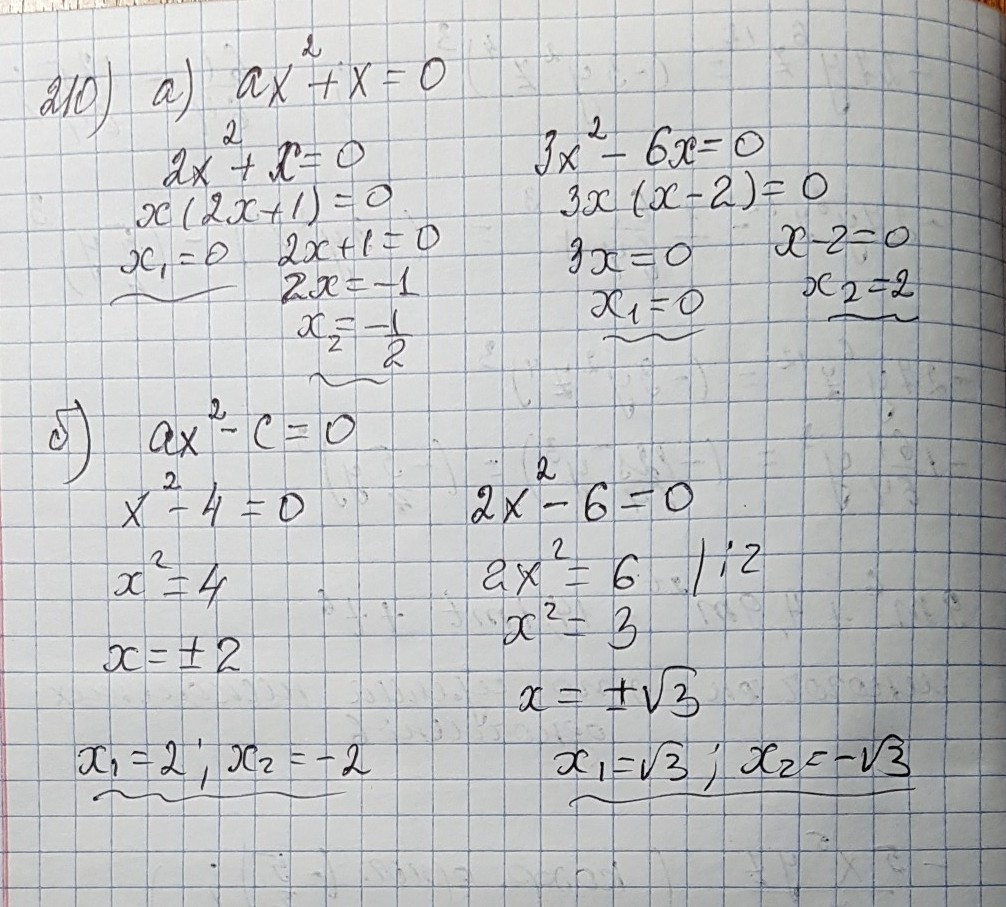 210) а) ax² + x = 0
2x² + x = 0
x(2x+1) = 0
x₁ = 0 2x+1 = 0
2x = -1
x₂ = -1/2
3x² - 6x = 0
3x(x-2) = 0
3x = 0 x-2 = 0
x₁ = 0 x₂ = 2
б) ax² - c = 0
x² - 4 = 0
x² = 4
x = ±2
x₁ = 2; x₂ = -2
2x² - 6 = 0
2x² = 6 |:2
x² = 3
x = ±√3
x₁ = √3; x₂ = -√3